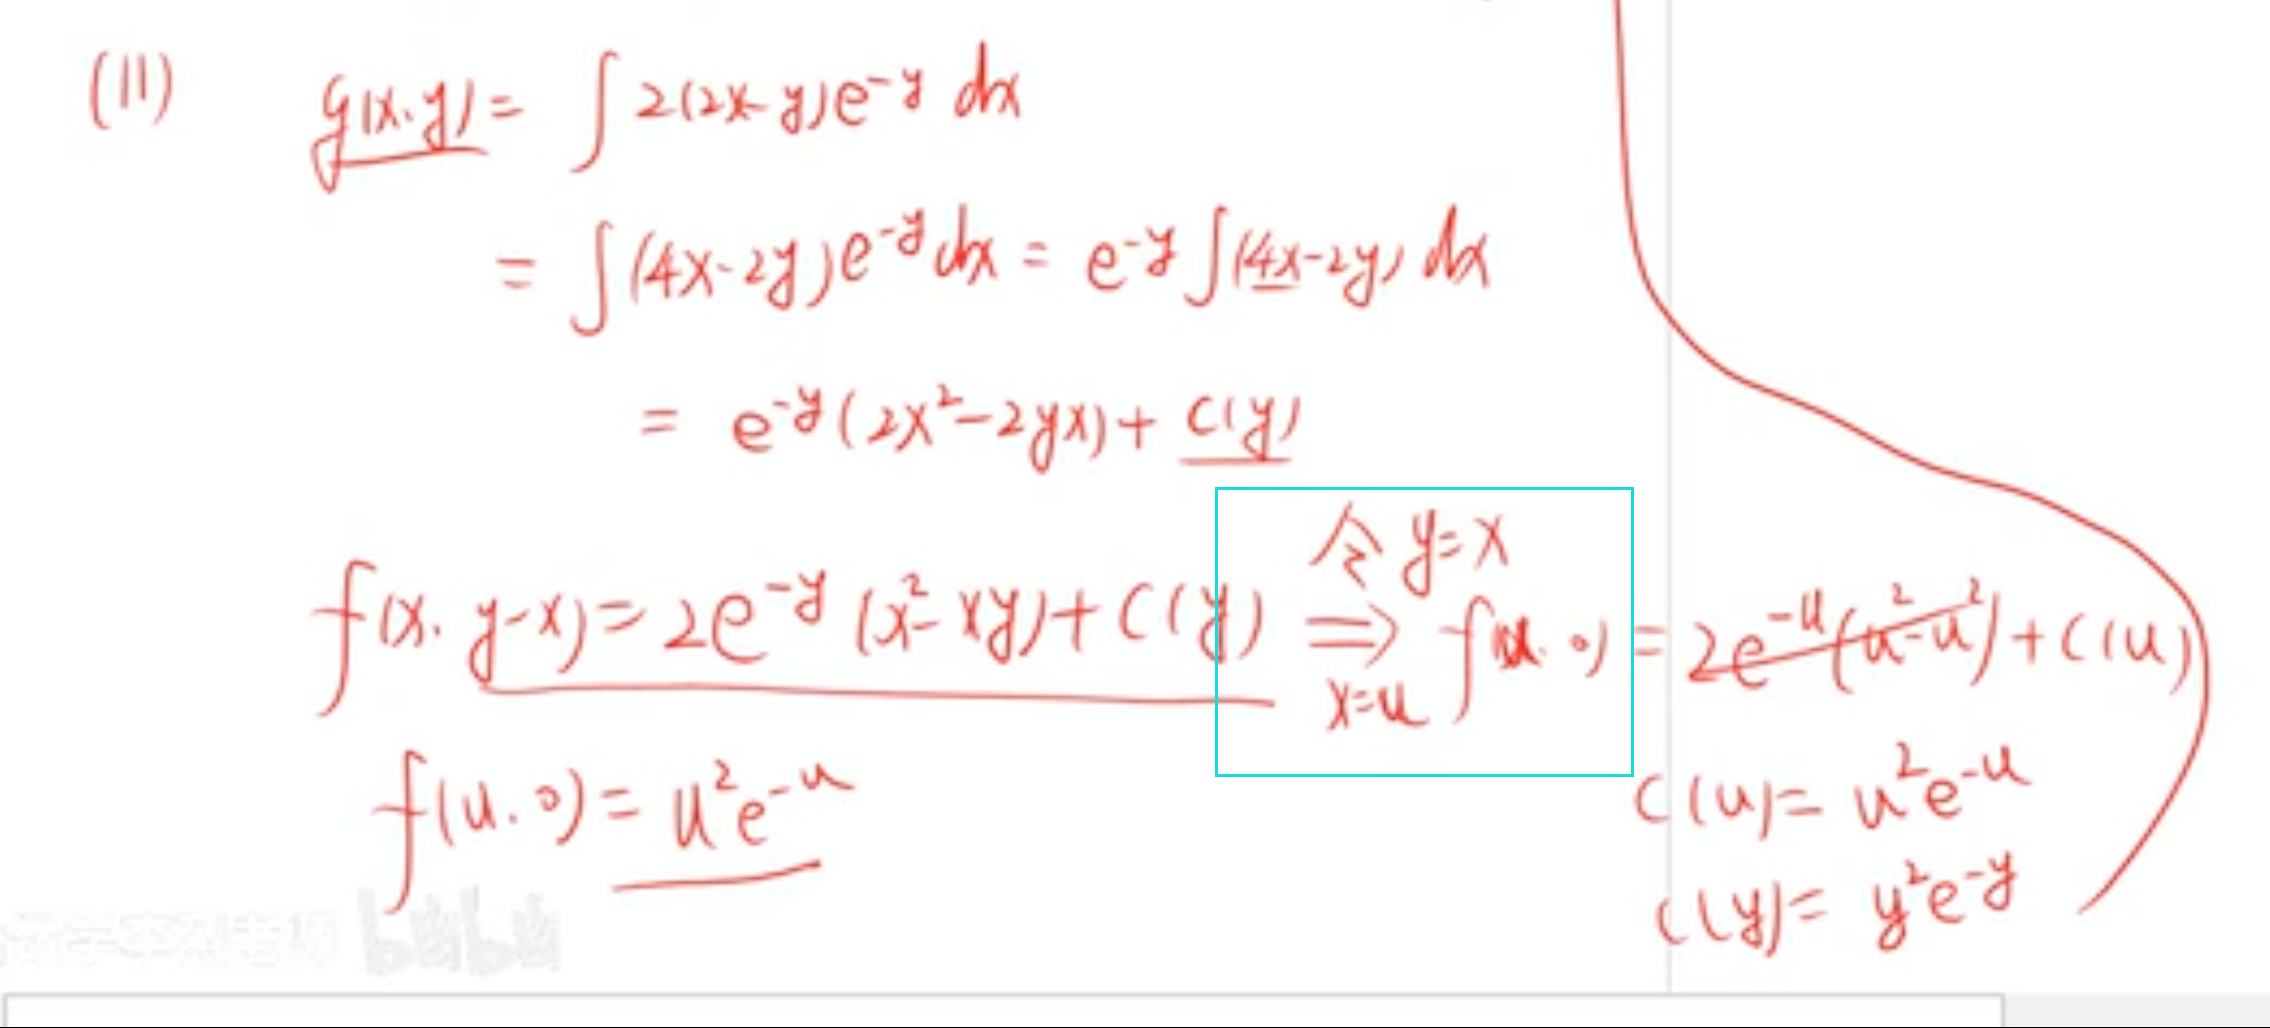 (11) g(x,y) = ∫2(2x-y)e^{-y} dx
= ∫(4x-2y)e^{-y}dx = e^{-y}∫(4x-2y) dx
= e^{-y}(2x²-2yx)+ C(y)
令 y=x
f(x, y-x) = 2e^{-y}(x²-xy)+C(y) ⇒ f(u,0) = 2e^{-u}(u²-u²)+C(u)
x=u
f(u,0) = u²e^{-u}
C(u) = u²e^{-u}
C(y) = y²e^{-y}
bilibili